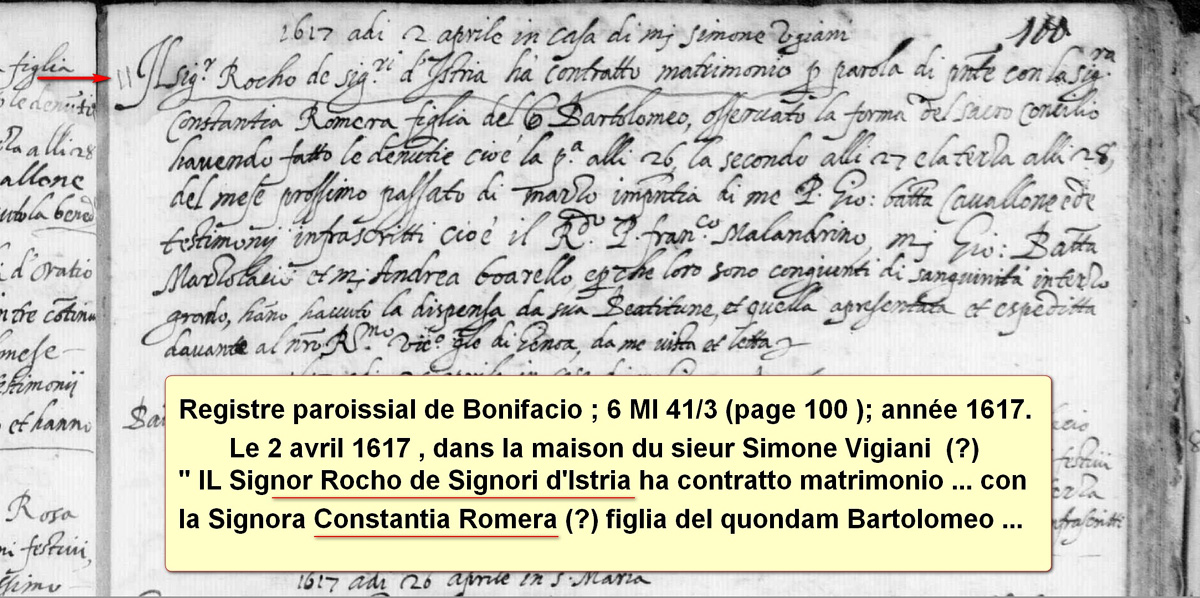 1617 adi 2 aprile in casa di mj simone
100
Il sig.r Rocho de sig.ri d'Istria ha contratto matrimonio p parola di pnte con la sig.ra
Constantia Romera figlia del Bartolomeo, osseruato la forma del sacro concilio
hauendo fatto le denutie cioè la p.a alli 26, la secondo alli 27 e la terza alli 28,
del mese prossimo passato di marzo di me P. Gio: batta Cauallone
testimonij infrascritti cioè il R.do P. fran.co Malandrino, mj Gio: Batta
et mj Andrea boarello, che loro sono congiunti di sanguinità in terzo
grado, hano hauuto la dispensa da sua Beatitune, et quella apresentata et espeditta
davante al nro R.mo Vic.o gle di Genoa, da me vista et letta
figlia
le denutie
alli 28
allone
d'oratio
mese
et hanno
Rosa
Registre paroissial de Bonifacio ; 6 MI 41/3 (page 100 ); année 1617.
Le 2 avril 1617 , dans la maison du sieur Simone Vigiani (?)
" IL Signor Rocho de Signori d'Istria ha contratto matrimonio ... con
la Signora Constantia Romera (?) figlia del quondam Bartolomeo ...
1617 adi 26 aprile in s. Maria